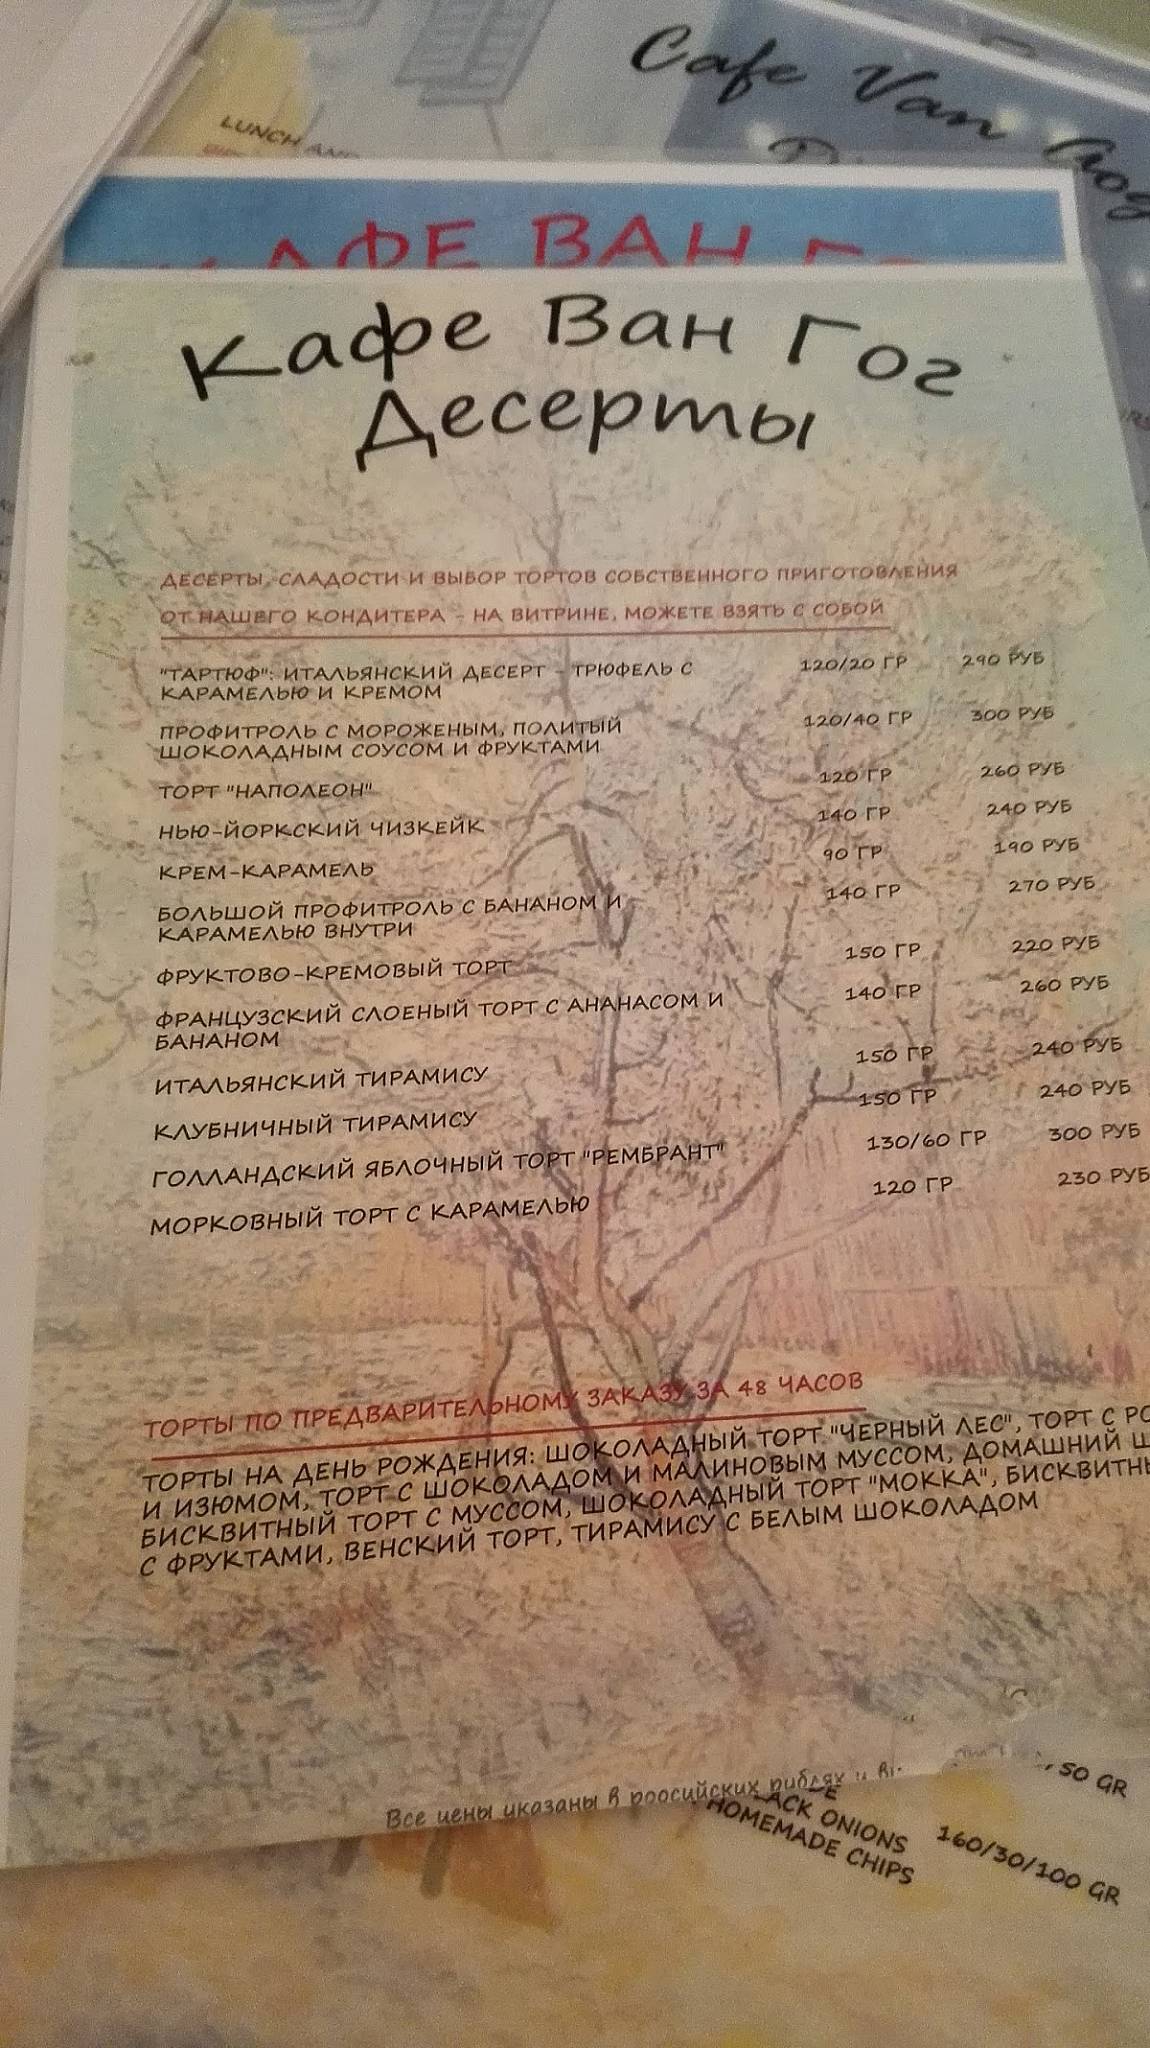 Cafe Van Gog
LUNCH AND
КАФЕ ВАН Го
Кафе Ван Гог
Десерты
ДЕСЕРТЫ, СЛАДОСТИ И ВЫБОР ТОРТОВ СОБСТВЕННОГО ПРИГОТОВЛЕНИЯ
ОТ НАШЕГО КОНДИТЕРА - НА ВИТРИНЕ, МОЖЕТЕ ВЗЯТЬ С СОБОЙ
"ТАРТЮФ": ИТАЛЬЯНСКИЙ ДЕСЕРТ - ТРЮФЕЛЬ С 120/20 ГР 290 РУБ
КАРАМЕЛЬЮ И КРЕМОМ
ПРОФИТРОЛЬ С МОРОЖЕНЫМ, ПОЛИТЫЙ 120/40 ГР 300 РУБ
ШОКОЛАДНЫМ СОУСОМ И ФРУКТАМИ
ТОРТ "НАПОЛЕОН" 120 ГР 260 РУБ
НЬЮ-ЙОРКСКИЙ ЧИЗКЕЙК 140 ГР 240 РУБ
КРЕМ-КАРАМЕЛЬ 90 ГР 190 РУБ
БОЛЬШОЙ ПРОФИТРОЛЬ С БАНАНОМ И 140 ГР 270 РУБ
КАРАМЕЛЬЮ ВНУТРИ
ФРУКТОВО-КРЕМОВЫЙ ТОРТ 150 ГР 220 РУБ
ФРАНЦУЗСКИЙ СЛОЕНЫЙ ТОРТ С АНАНАСОМ И 140 ГР 260 РУБ
БАНАНОМ
ИТАЛЬЯНСКИЙ ТИРАМИСУ 150 ГР 240 РУБ
КЛУБНИЧНЫЙ ТИРАМИСУ 150 ГР 240 РУБ
ГОЛЛАНДСКИЙ ЯБЛОЧНЫЙ ТОРТ "РЕМБРАНТ" 130/60 ГР 300 РУБ
МОРКОВНЫЙ ТОРТ С КАРАМЕЛЬЮ 120 ГР 230 РУБ
ТОРТЫ ПО ПРЕДВАРИТЕЛЬНОМУ ЗАКАЗУ ЗА 48 ЧАСОВ
ТОРТЫ НА ДЕНЬ РОЖДЕНИЯ: ШОКОЛАДНЫЙ ТОРТ "ЧЕРНЫЙ ЛЕС", ТОРТ С РО
И ИЗЮМОМ, ТОРТ С ШОКОЛАДОМ И МАЛИНОВЫМ МУССОМ, ДОМАШНИЙ Ш
БИСКВИТНЫЙ ТОРТ С МУССОМ, ШОКОЛАДНЫЙ ТОРТ "МОККА", БИСКВИТНЫ
С ФРУКТАМИ, ВЕНСКИЙ ТОРТ, ТИРАМИСУ С БЕЛЫМ ШОКОЛАДОМ
Все цены указаны в российских рублях и
50 GR
ACK ONIONS 160/30/100 GR
HOMEMADE CHIPS